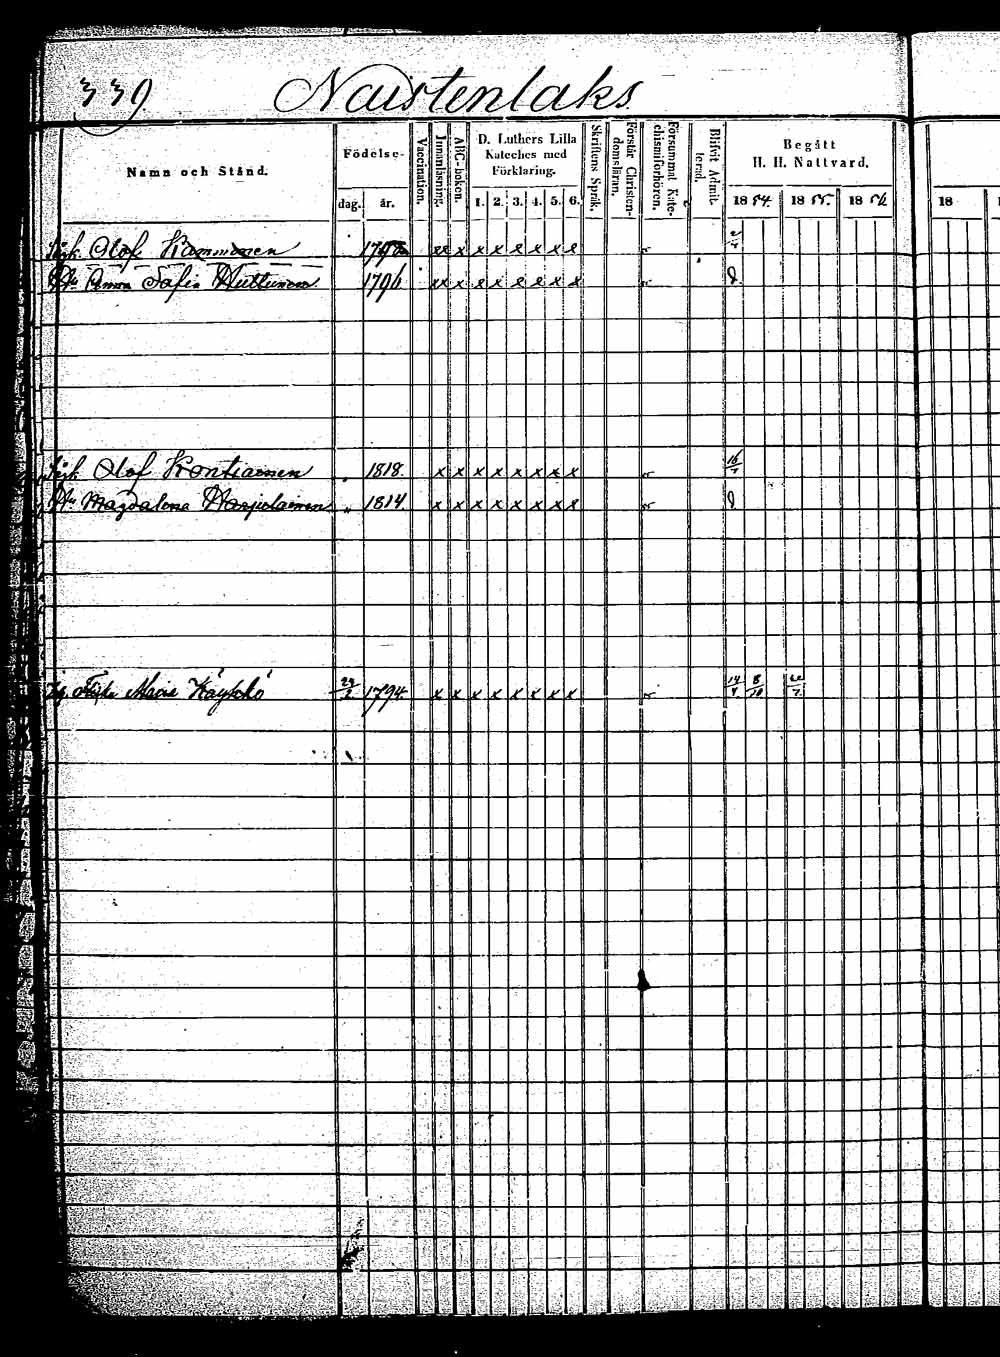 339 Naistenlaks
Namn och Stånd.
Födelse-
dag. år.
Vaccination.
Innanläsning.
ABC-boken.
D. Luthers Lilla
Kateches med
Förklaring.
1. 2. 3. 4. 5. 6.
Skriftens Språk.
Förstår Christen-
domsläran.
Försummat Kate-
chismiförhören.
Blifvit Admit-
terad.
Begått
H. H. Nattvard.
1854. 1855. 1856
18
Olof Kammonen x x x x x x
Anna Sofia Huttunen 1796 x x x x x x
Olof Kontiainen 1818 x x x x x x x x
Magdalena Harjulainen " 1814 x x x x x x x x
Maria Käyhkö 1794 x x x x x x x x